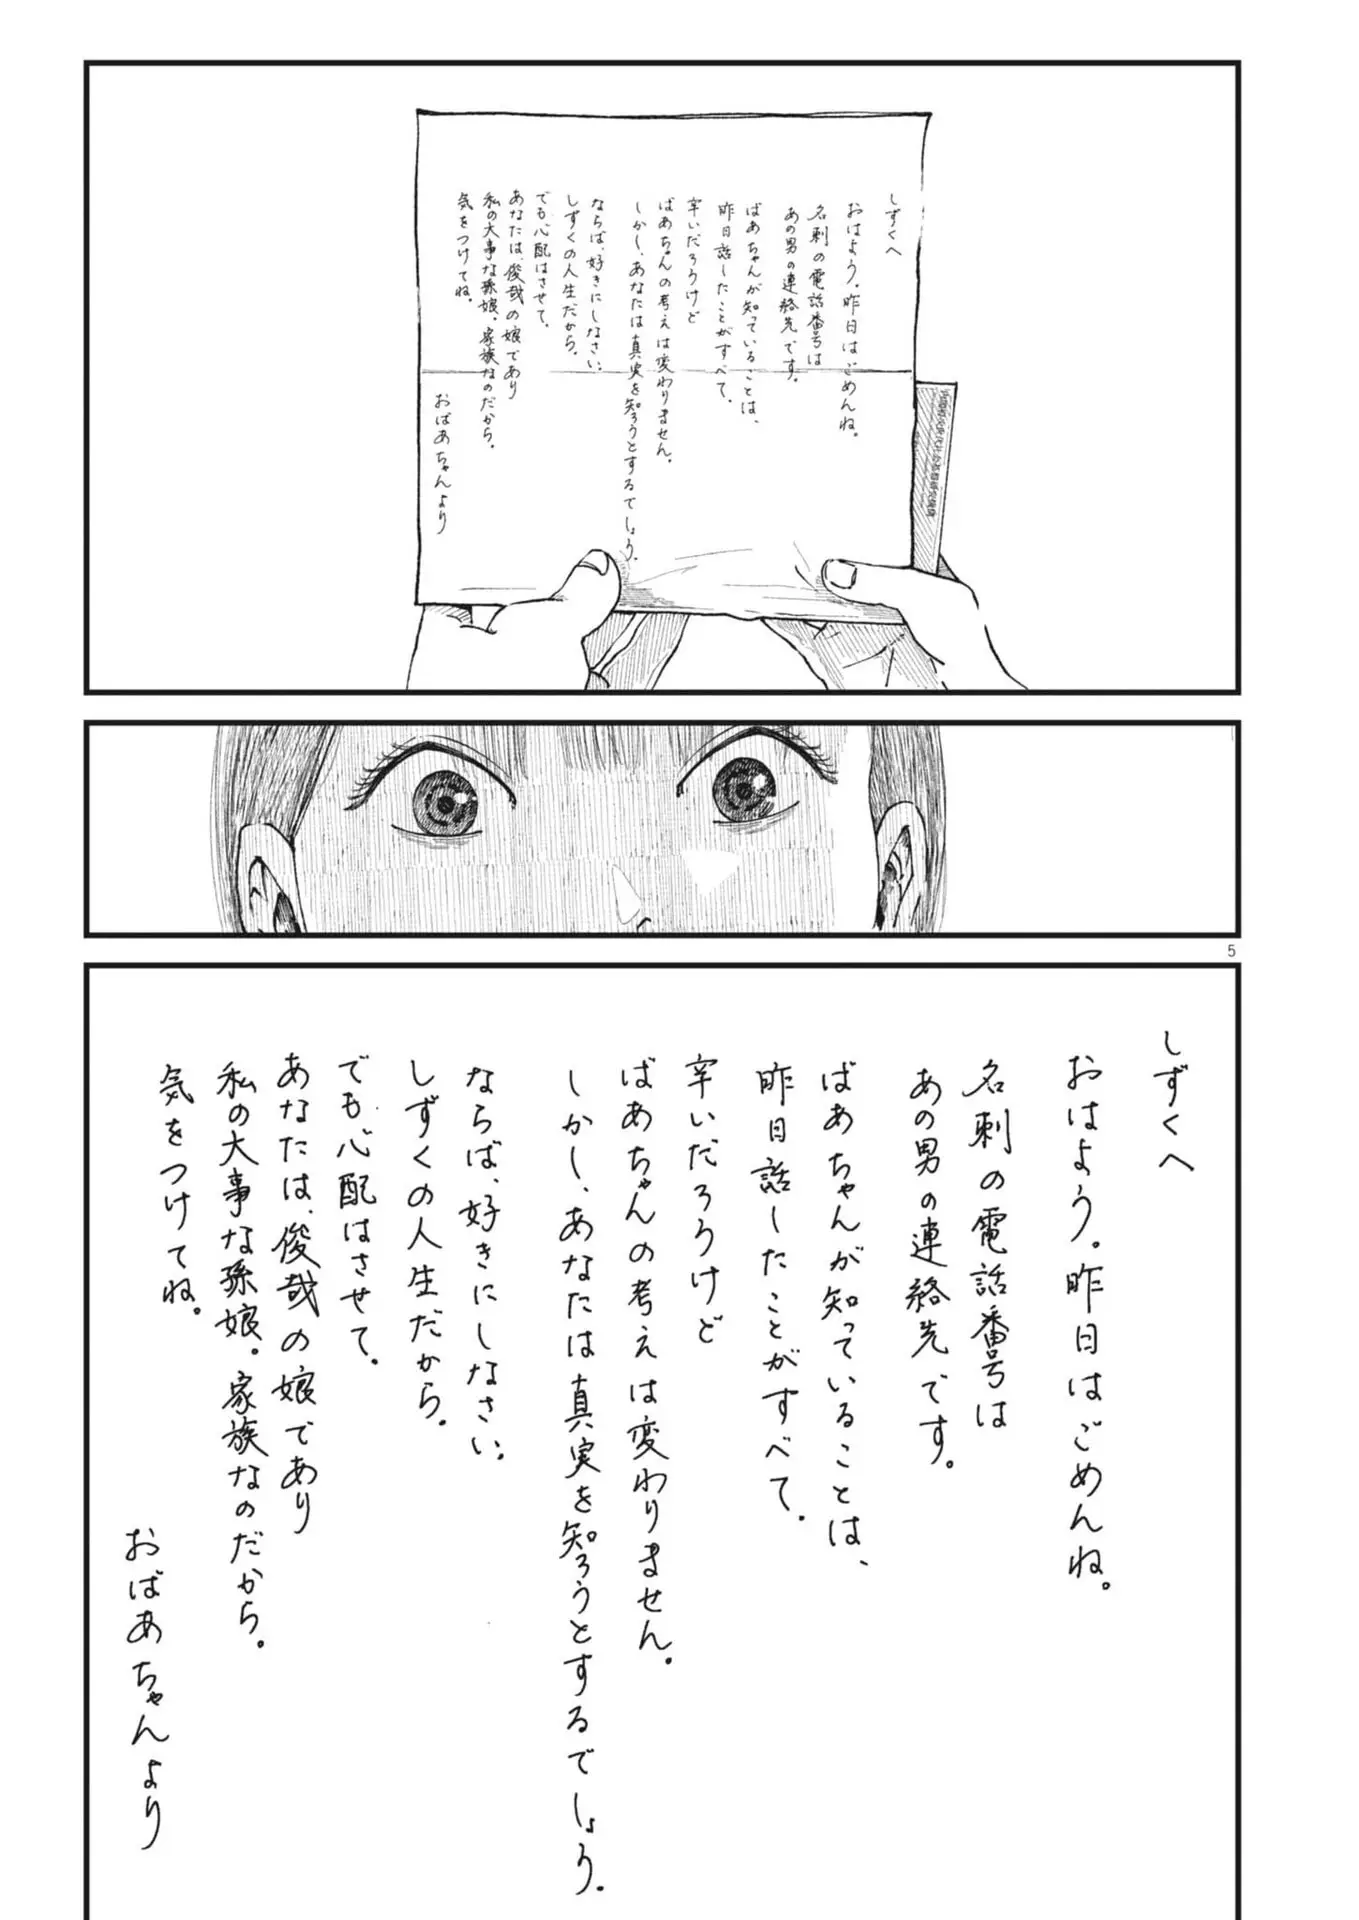 しずくへ
おはよう。昨日はごめんね。
名刺の電話番号は
あの男の連絡先です。
ばあちゃんが知っていることは、
昨日話したことがすべて。
辛いだろうけど
ばあちゃんの考えは変わりません。
しかし、あなたは真実を知ろうとするでしょう。
ならば、好きにしなさい。
しずくの人生だから。
でも心配はさせて。
あなたは、俊哉の娘であり
私の大事な孫娘。家族なのだから。
気をつけてね。
おばあちゃんより
5
しずくへ
おはよう。昨日はごめんね。
名刺の電話番号は
あの男の連絡先です。
ばあちゃんが知っていることは、
昨日話したことがすべて。
辛いだろうけど
ばあちゃんの考えは変わりません。
しかし、あなたは真実を知ろうとするでしょう。
ならば、好きにしなさい。
しずくの人生だから。
でも心配はさせて。
あなたは、俊哉の娘であり
私の大事な孫娘。家族なのだから。
気をつけてね。
おばあちゃんより